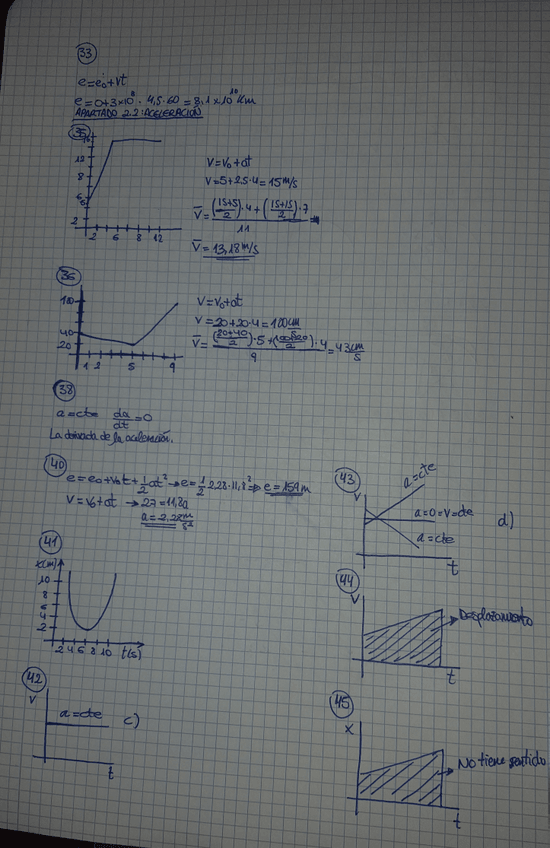 33
e=e₀+vt
e=0+3×10⁸·4,5·60=8,1×10¹⁰Km
APARTADO 2.2: ACELERACIÓN
35
12
8
2
2 6 8 12
V=V₀+at
V=5+2,5·4=15m/s
V̄=((15+5)/2)·4+((15+15)/2)·7
11
V̄=13,18m/s
36
100
40
20
1 2 5 9
V=V₀+at
V=20+20·4=100cm/s
V̄=((20+40)/2)·5+((100+20)/2)·4=43cm/s
9
38
a=cte da/dt=0
La derivada de la aceleración.
40
e=e₀+v₀t+1/2at²→e=1/2 2,28·11,8²⇒e=159m
V=V₀+at→27=11,8a
a=2,28m/s²
41
x(m)
10
8
6
4
2
2 4 6 8 10 t(s)
42
V
a=cte c)
t
43
V
a=cte
a=0=V=cte d)
a=cte
t
44
V
Desplazamiento
t
45
x
No tiene sentido
t